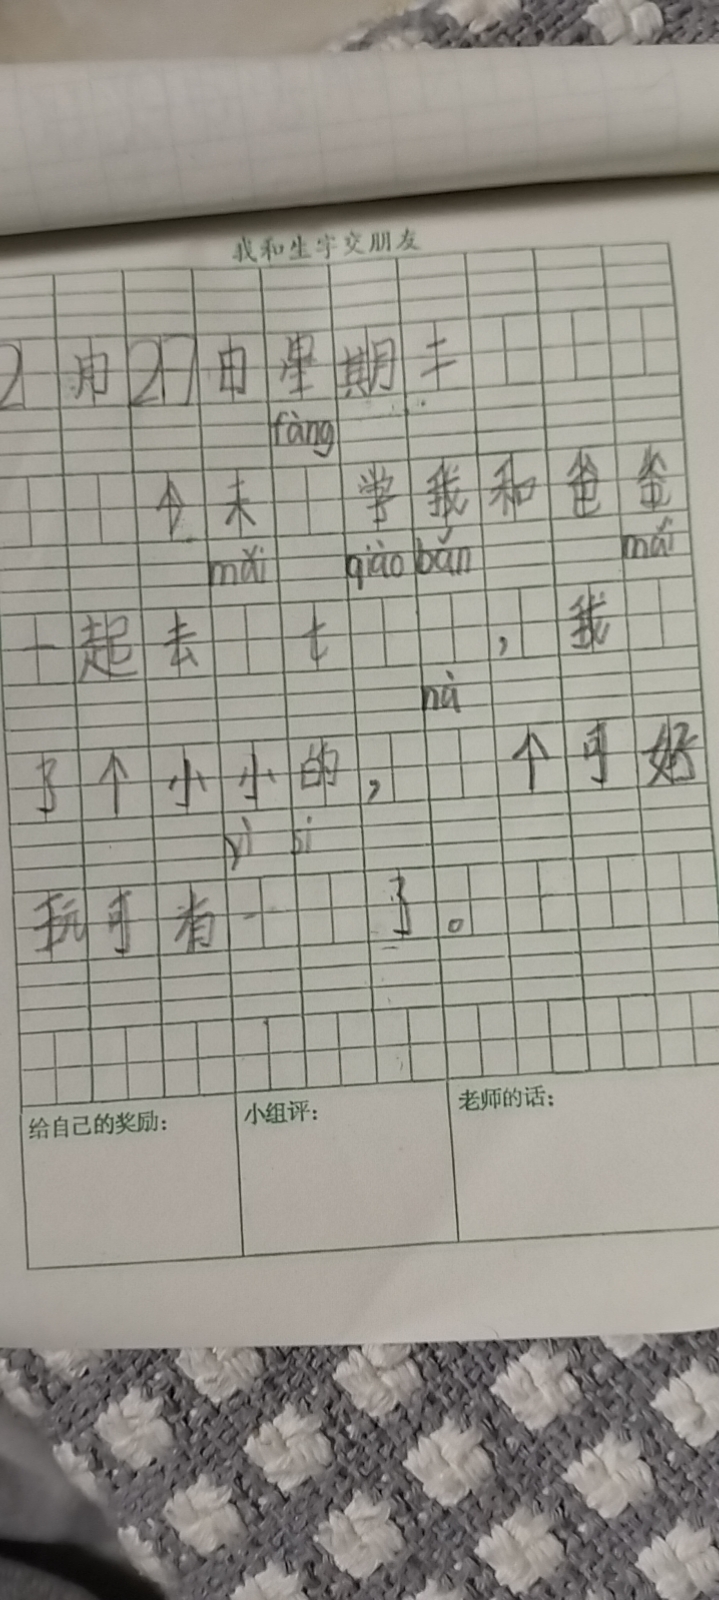 我和生字交朋友
2月27日星期二
fàng
今天学我和爸爸
mǎi qiào bǎn mǎi
一起去七，我
nà
了个小小的，个可好
yì si
玩可有一了。
给自己的奖励： 小组评： 老师的话：